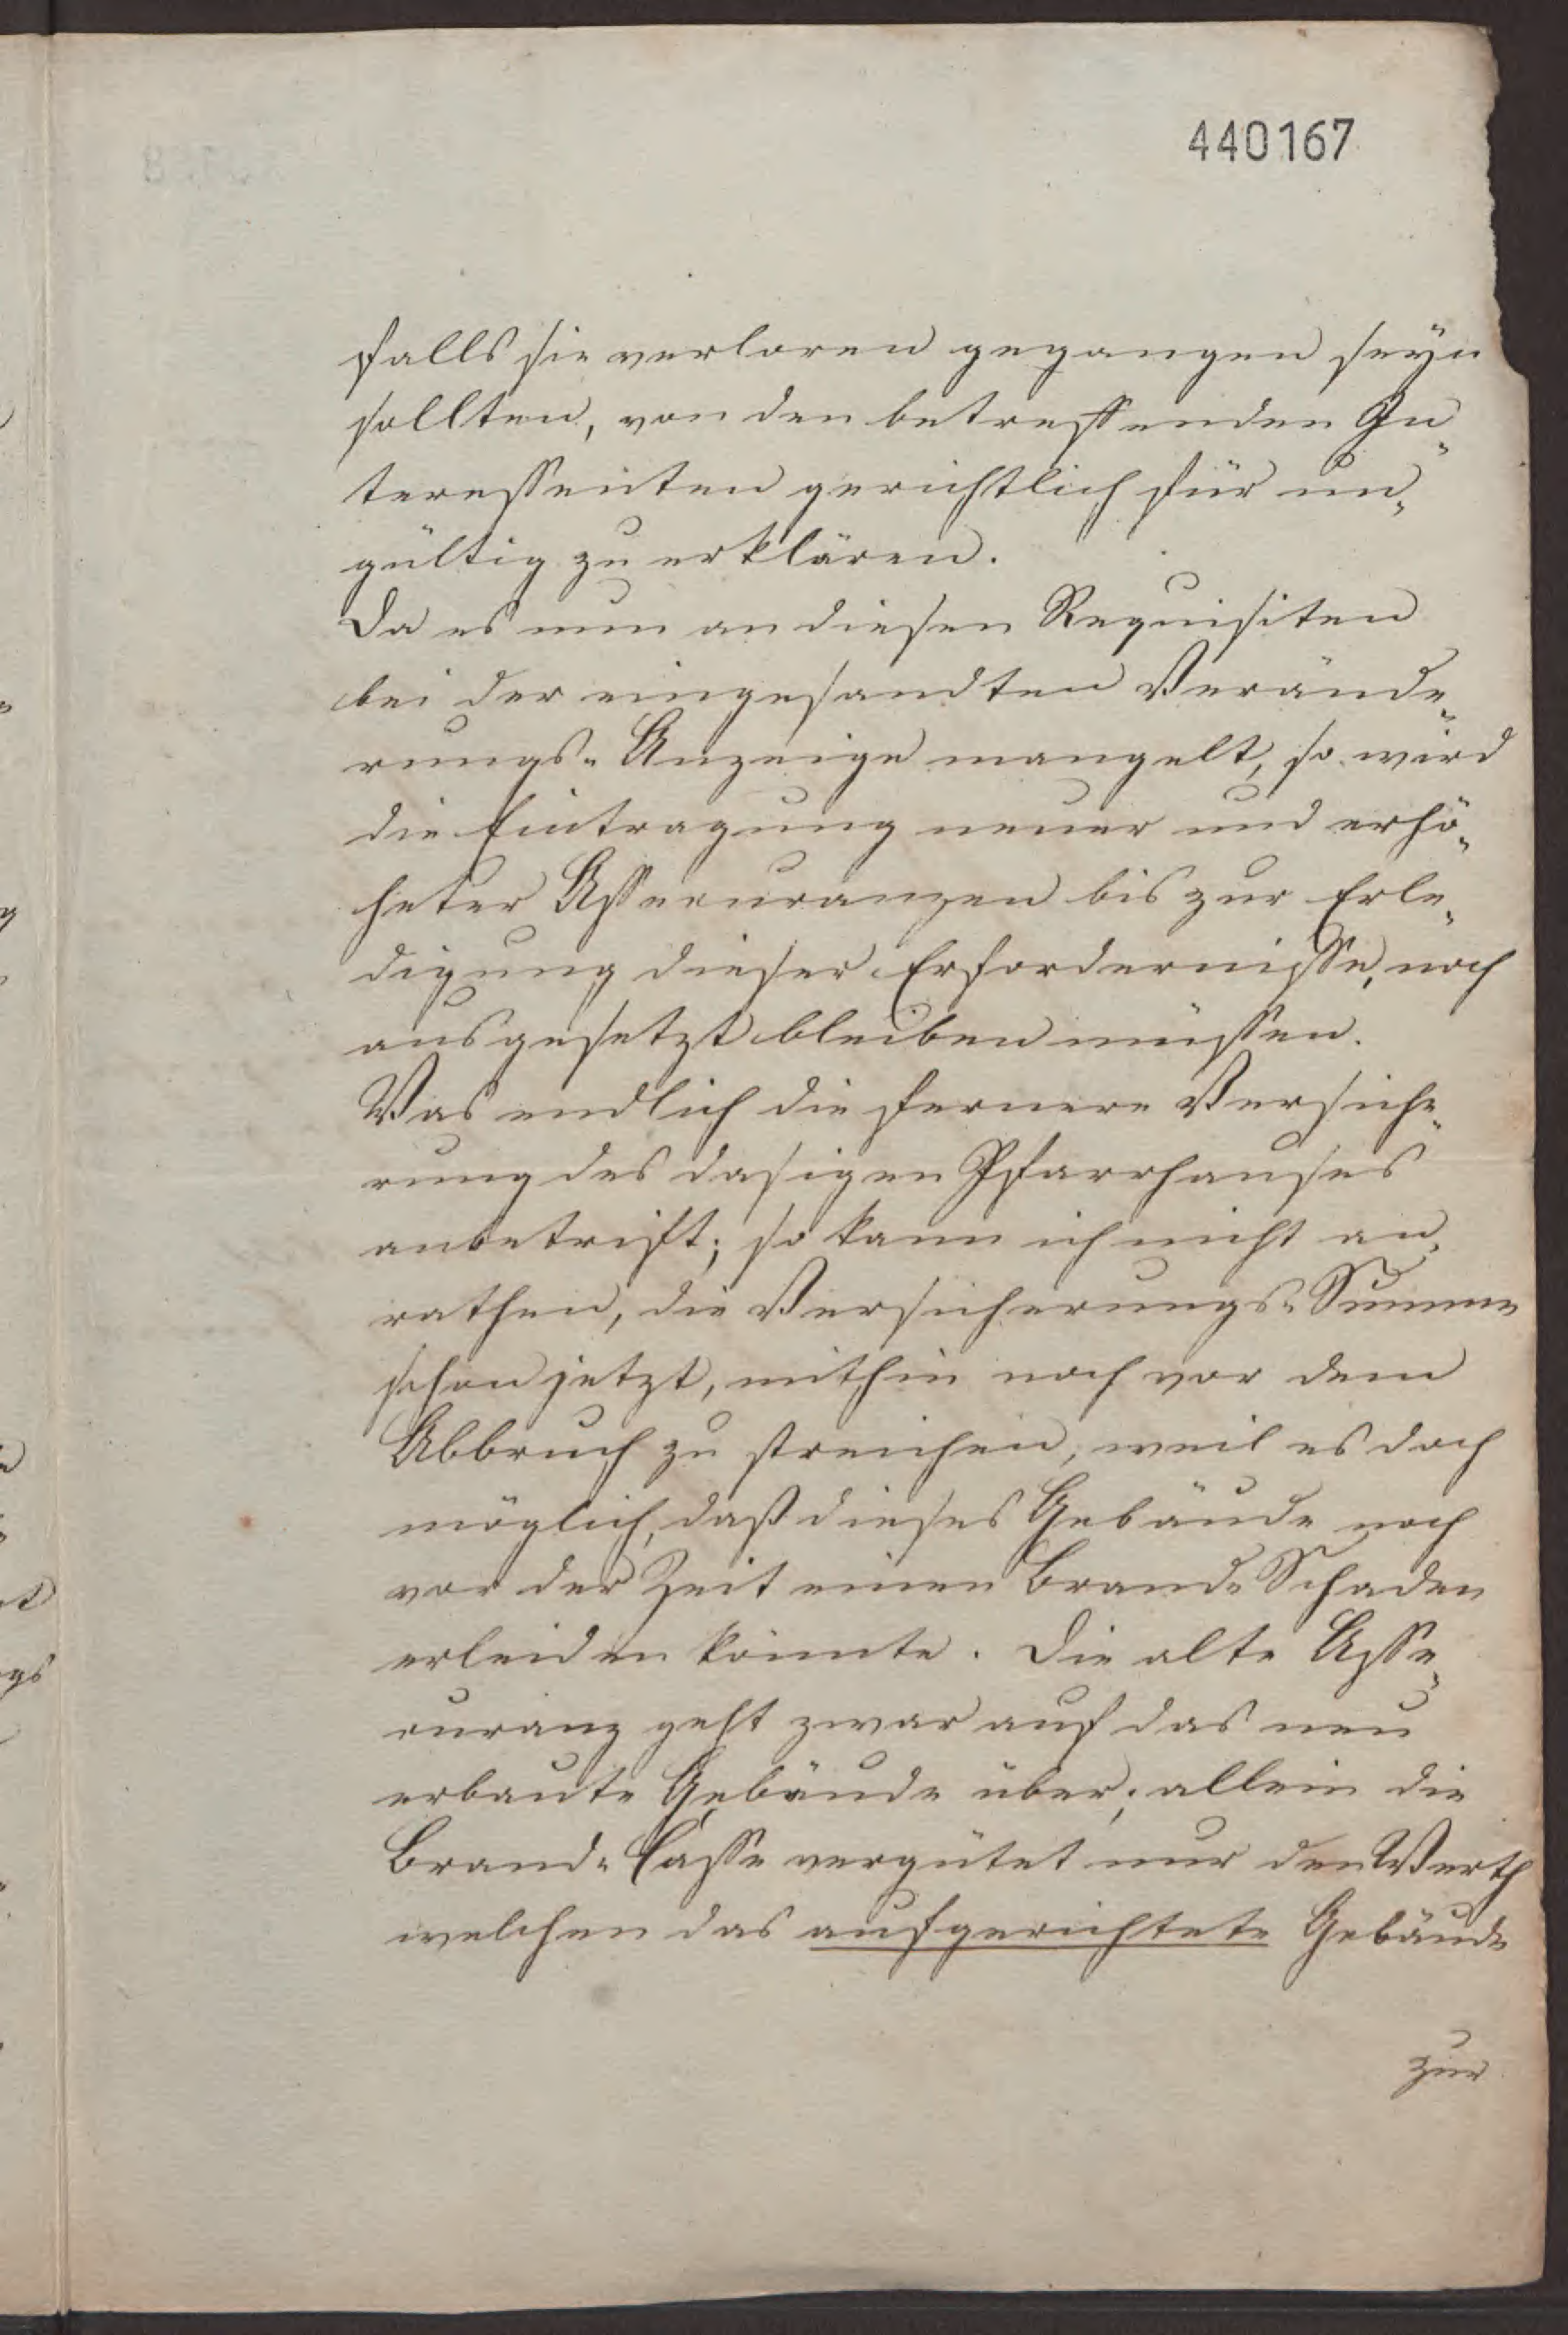 440167
falls sie verloren gegangen seyn
sollten, von den betreffenden In„
teressenten gerichtlich für un„
gültig zu erklären.
Da es nun an diesen Requisiten
bei der eingesandten Verände„
rungs-Anzeige mangelt, so wird
die Eintragung neuer und erhö„
heter Assecuranzen bis zur Erle„
digung dieser Erfordernisse, noch
ausgesetzt bleiben müssen.
Was endlich die fernere Versiche„
rung des dasigen Pfarrhauses
anbetrift; so kann ich nicht an„
rathen, die Versicherungs-Summe
schon jetzt, mithin noch vor dem
Abbruch zu streichen, weil es doch
möglich, daß dieses Gebäude noch
vor der Zeit einen Brand-Schaden
erleiden könnte. Die alte Asse„
curanz geht zwar auf das neu
erbaute Gebäude über; allein die
Brand-Casse vergütet nur den Werth
welchen das aufgerichtete Gebäude
zur